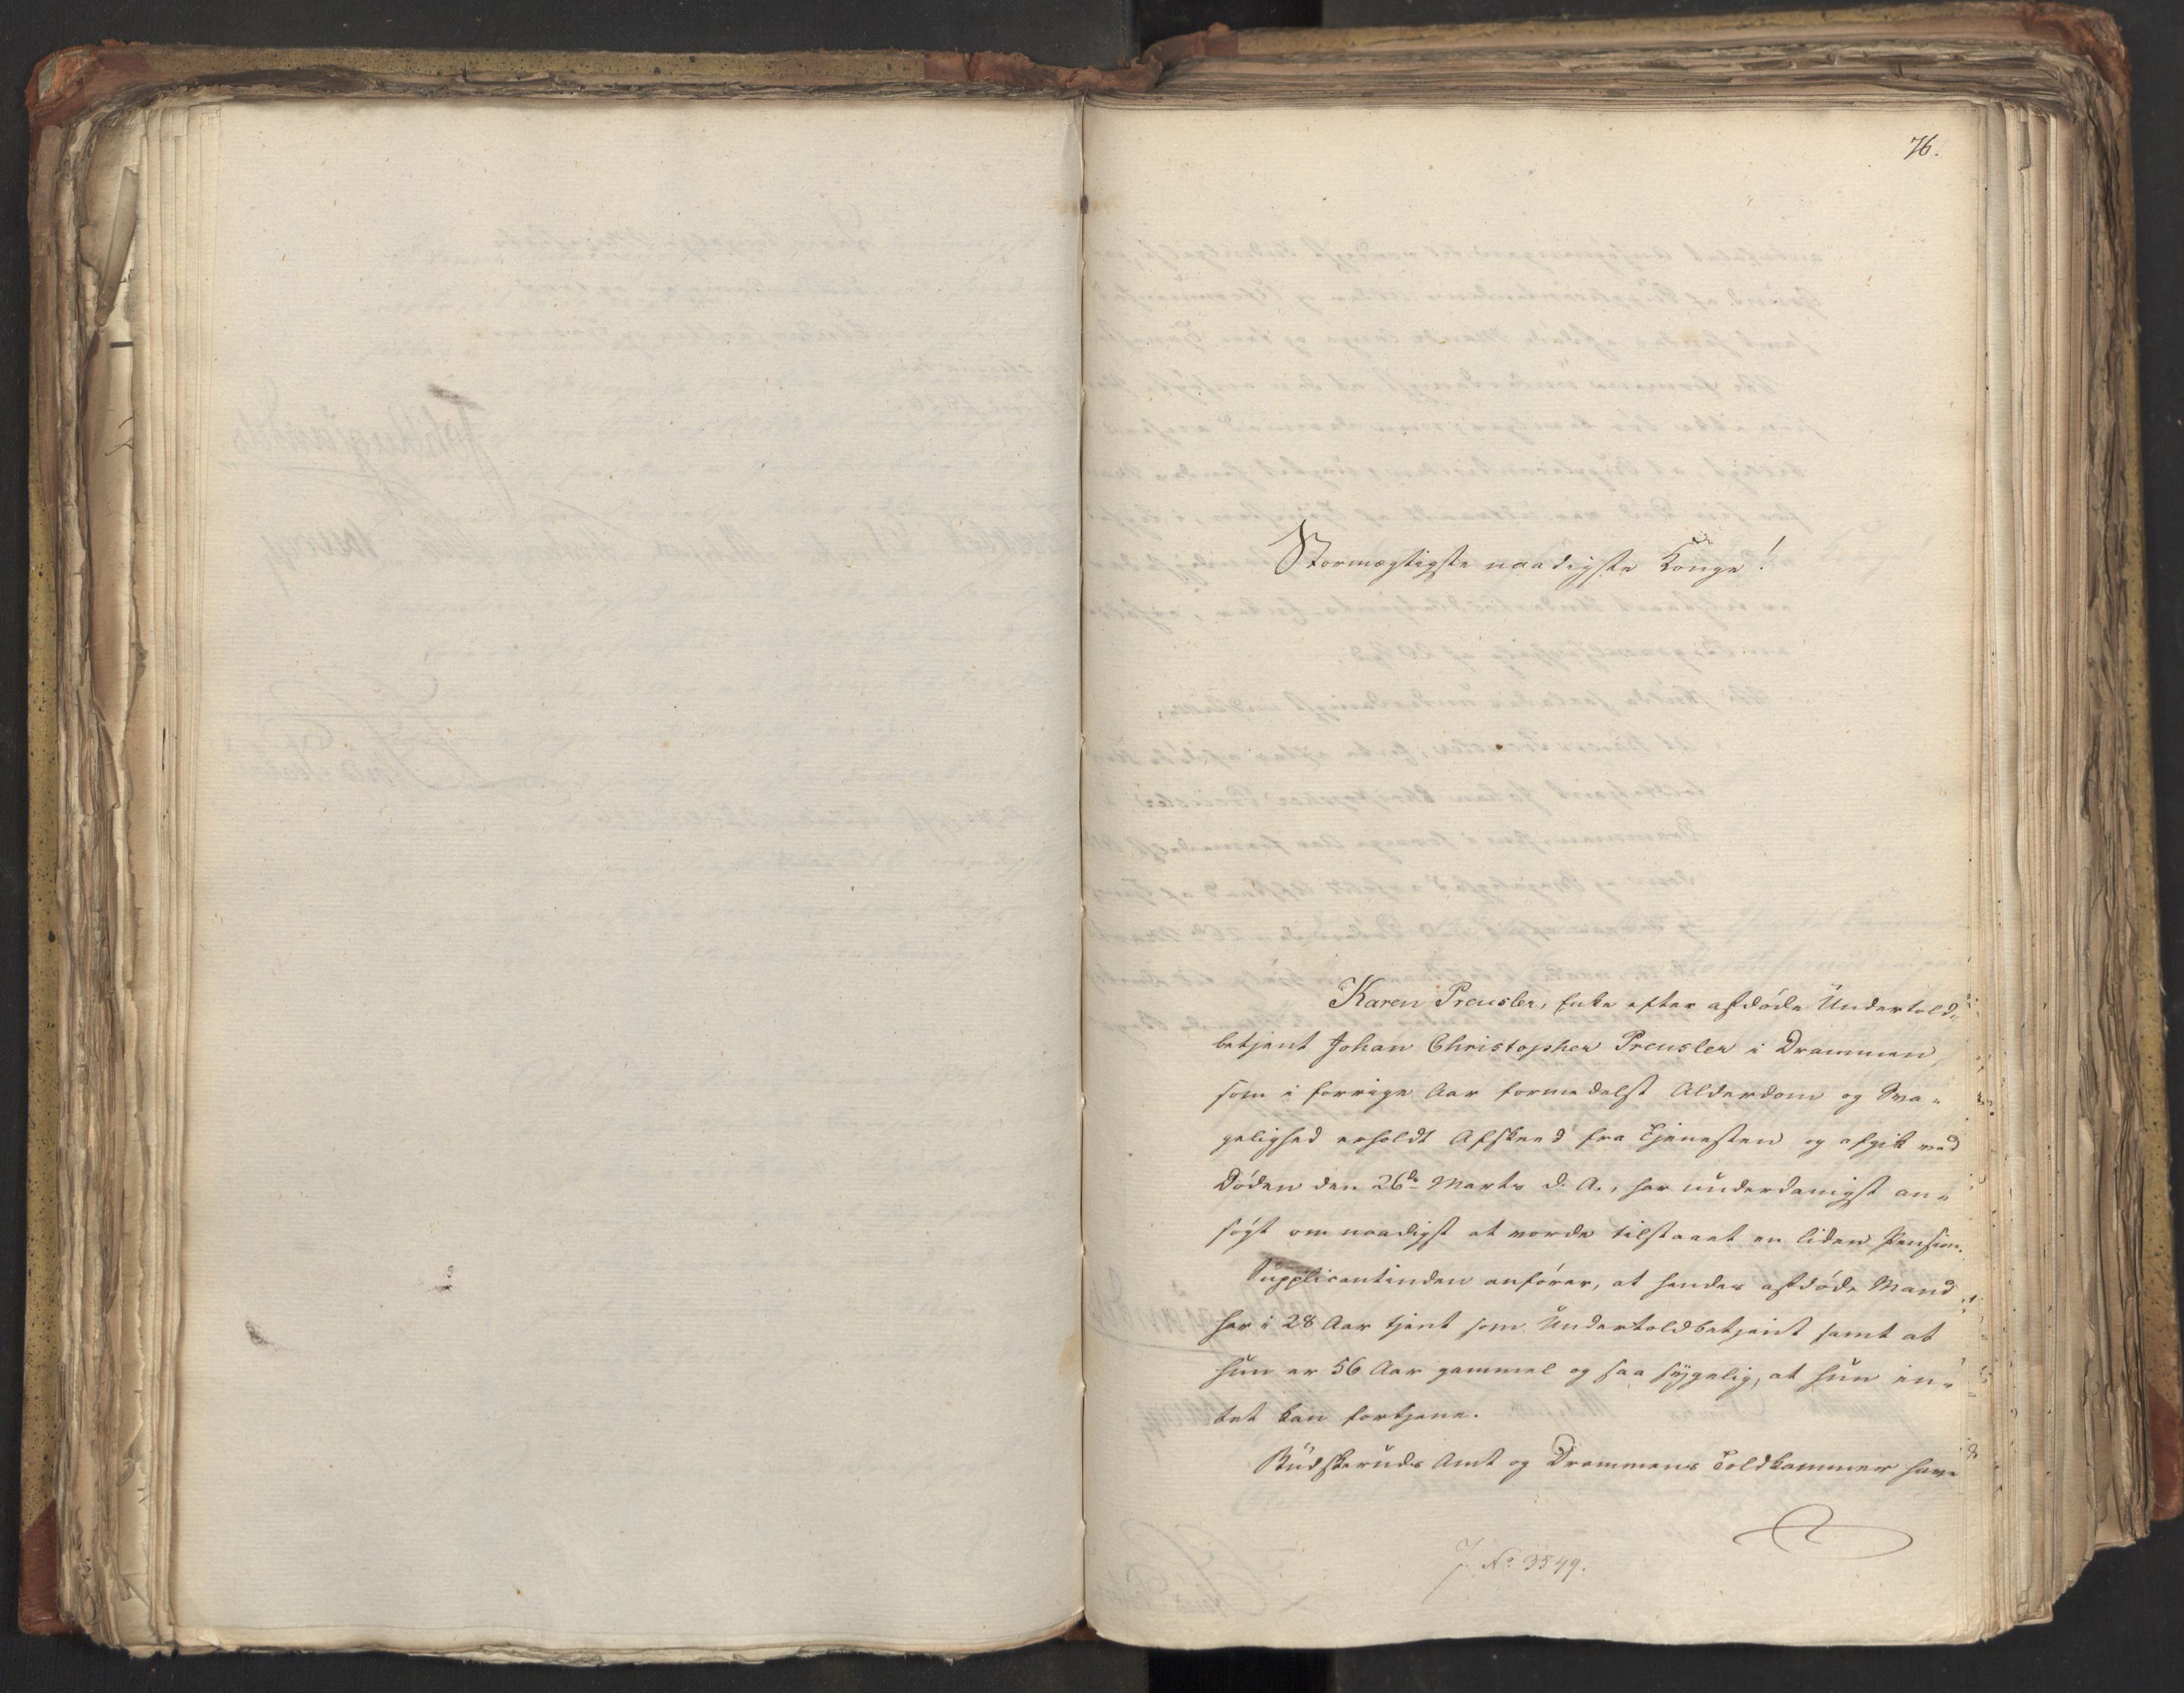 76.
Stormægtigste naadigste Konge!
Karen Preusler, Enke efter afdøde Undertold-
betjent Johan Christopher Preusler i Drammen,
som i forrige Aar formedelst Alderdom og Sva-
gelighed erholdt Afskeed fra Tjenesten og afgik ved
Døden den 26de Marts d. A., har underdanigst an-
søgt om naadigst at vorde tilstaaet en liden Pension.
Supplicantinden anfører, at hendes afdøde Mand
har i 28 Aar tjent som Undertoldbetjent samt at
hun er 56 Aar gammel og saa sygelig, at hun in-
tet kan fortjene.
Budskeruds Amt og Drammens Toldkammer have
J. No. 3549.